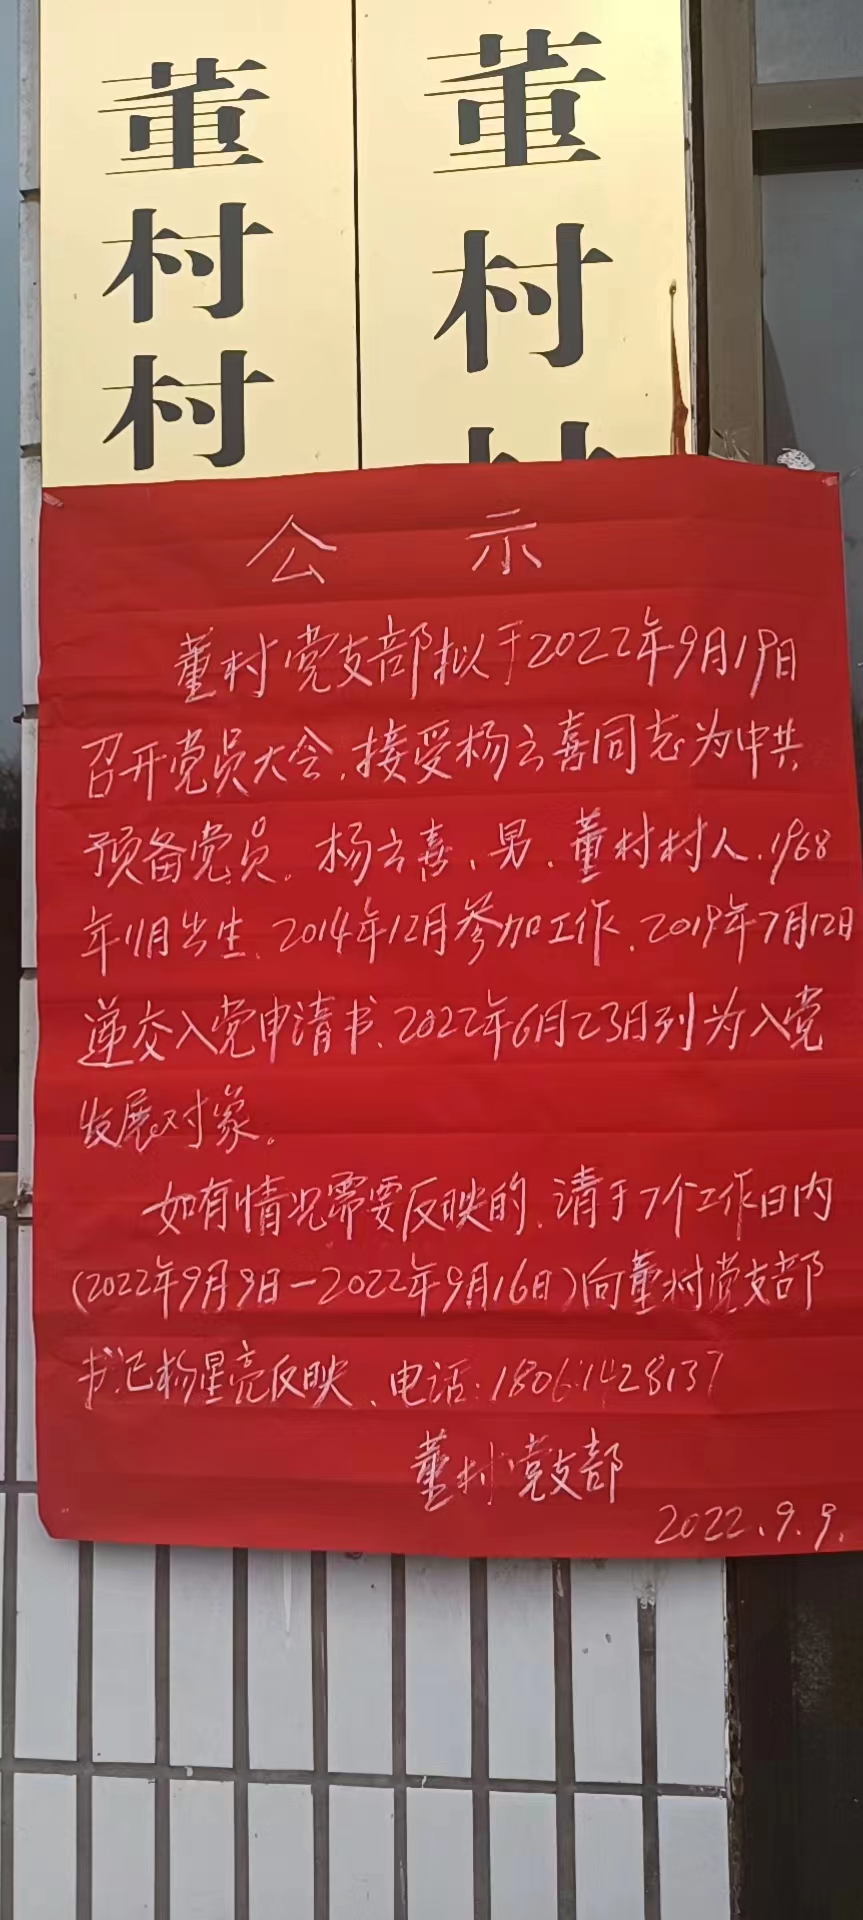 董村村
董村
公示
董村党支部拟于2022年9月19日
召开党员大会,接受杨云喜同志为中共
预备党员。杨云喜、男、董村村人、1968
年11月出生、2014年12月参加工作、2019年7月12日
递交入党申请书、2022年6月23日列为入党
发展对象。
如有情况需要反映的、请于7个工作日内
(2022年9月9日—2022年9月16日)向董村党支部
书记杨星亮反映、电话:18061428137
董村党支部
2022.9.9.